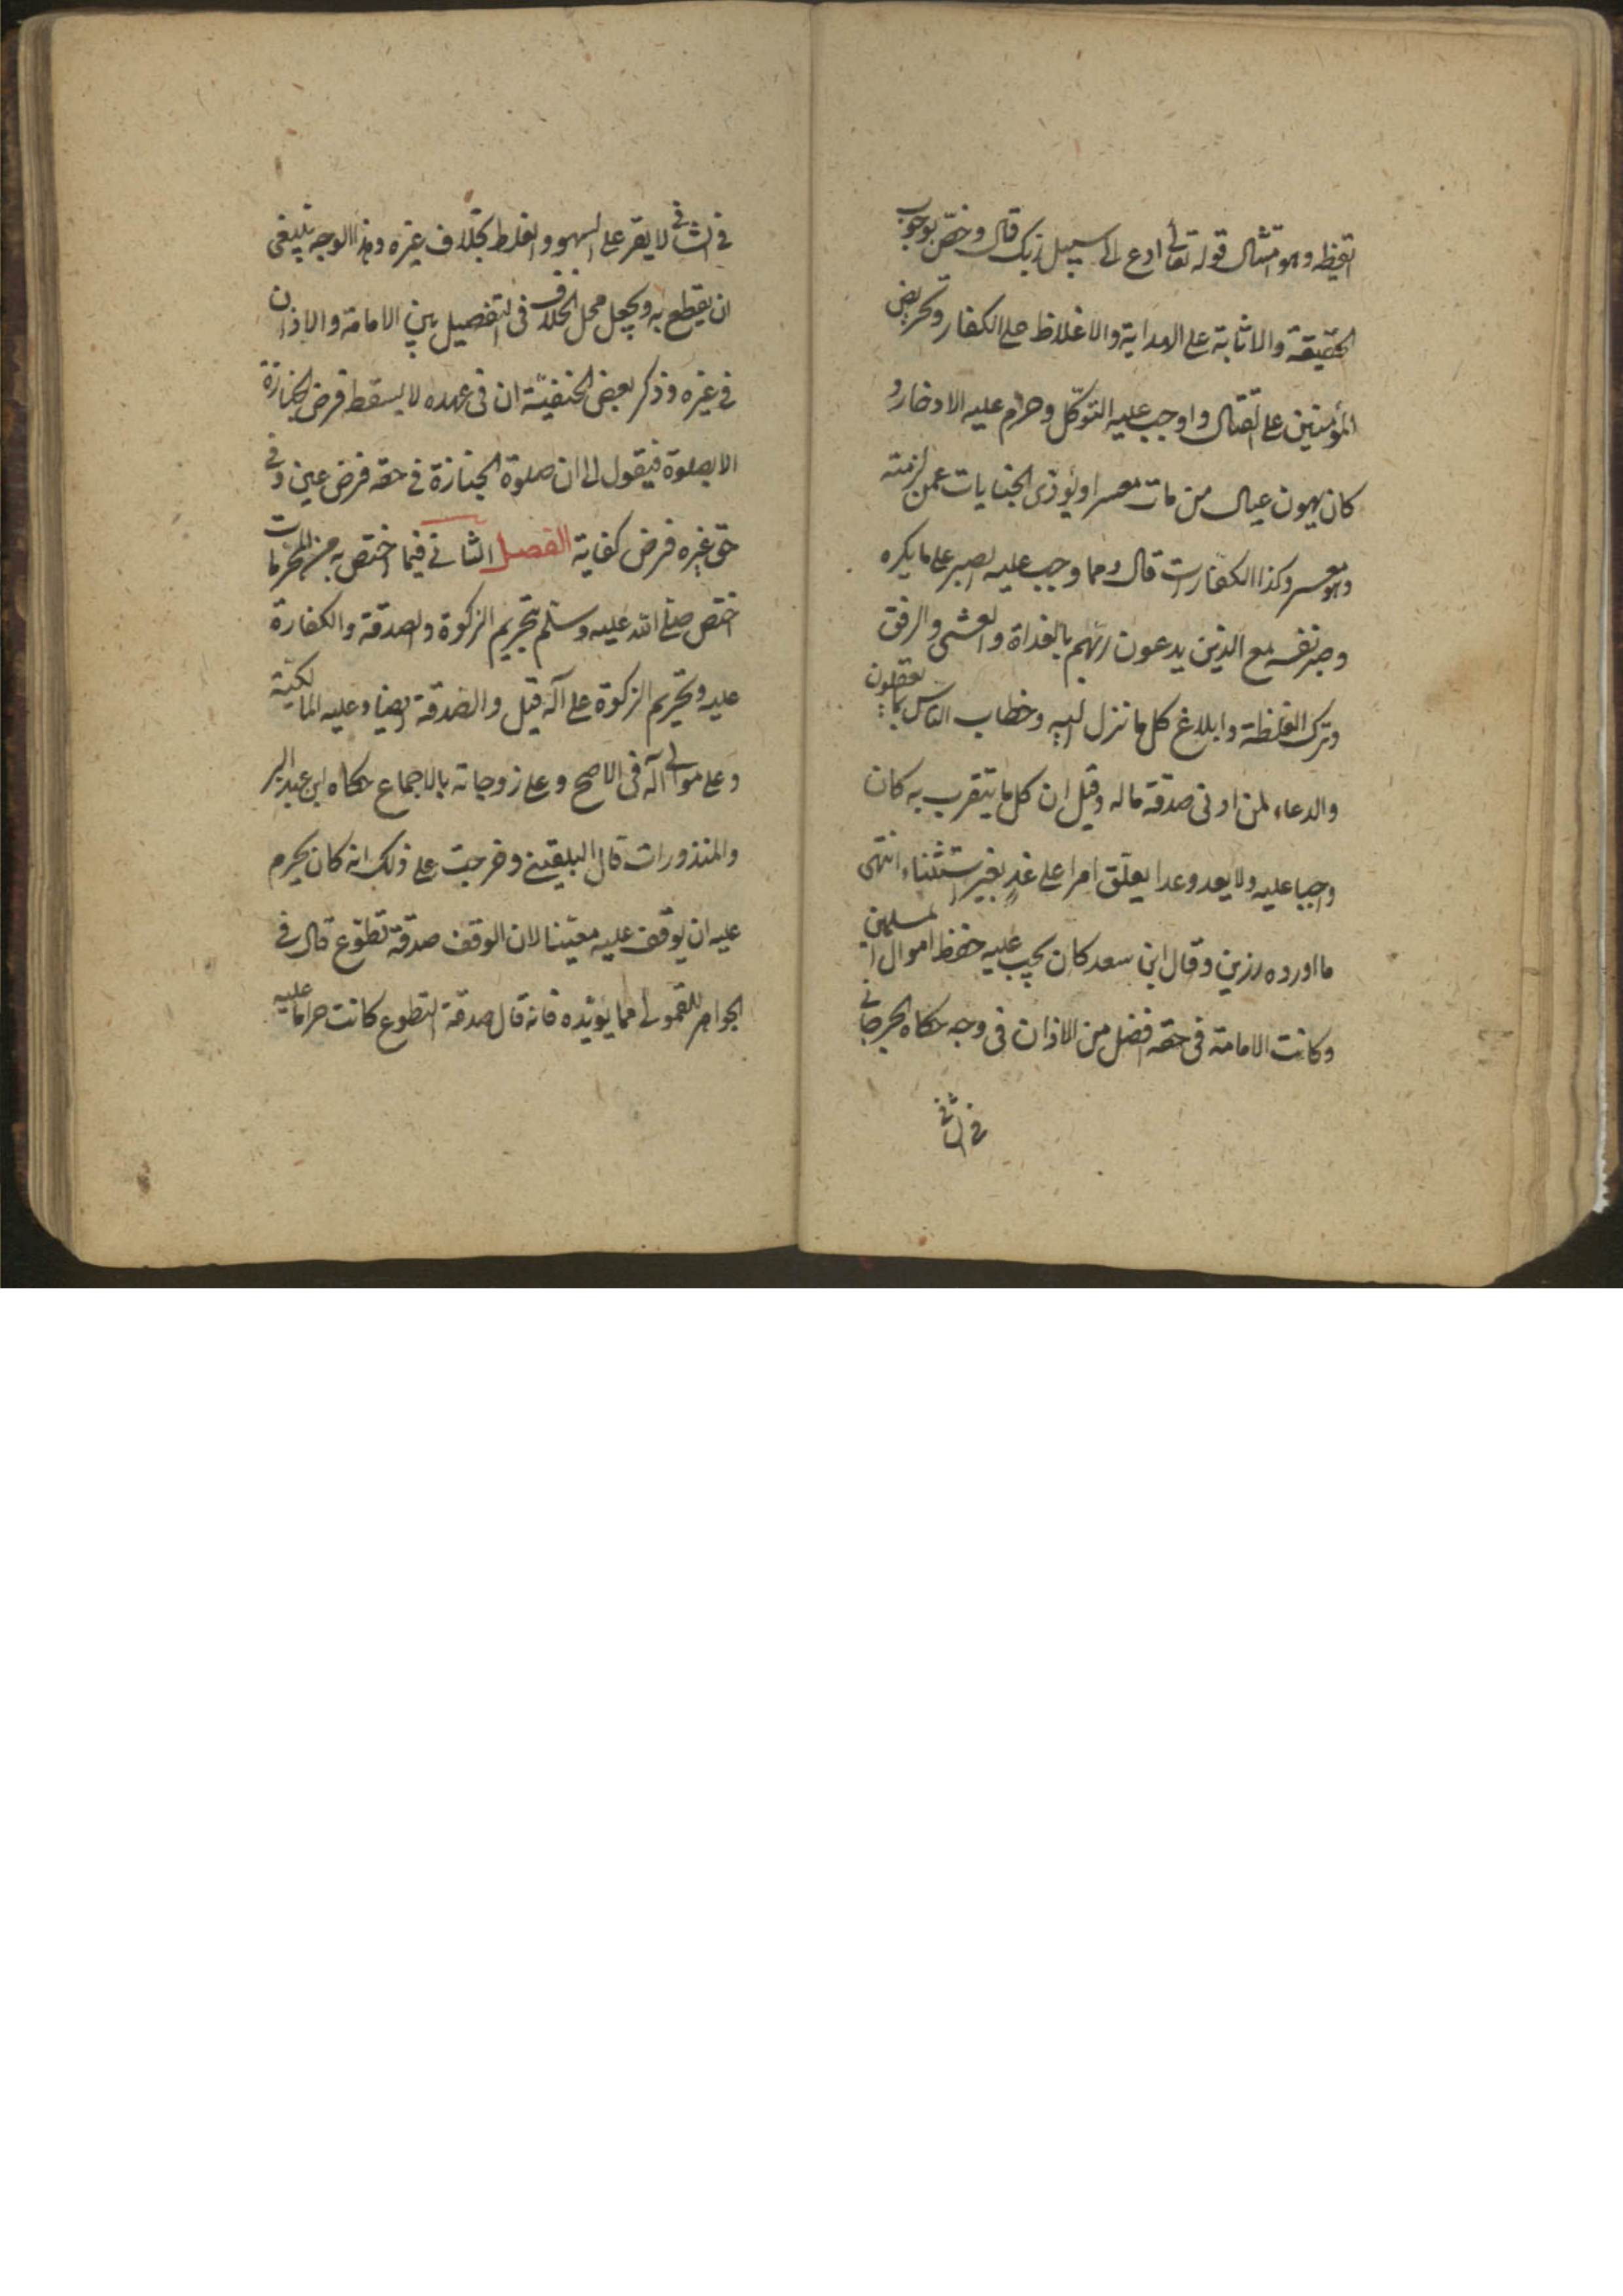 القبطه وهو امتثال قوله تعالى ادع الى سبيل ربك قال وخص بوجوب
العقيقة والاثابة على الهداية والاغلاظ على الكفار وتحريض
المؤمنين على القتال واوجب عليه التوكل وحرام عليه الادخار و
كان يمون عيال من مات معسرا ويؤدى الجنايات عمن لزمته
وهو معسر وكذا الكفارات قال ومما وجب عليه الصبر على ما يكره
وصبر نفسه مع الذين يدعون ربهم بالغداة والعشى والرفق
وترك الغلظة وابلاغ كل ما نزل اليه وخطاب الناس بما يعقلون
والدعاء لمن ادى صدقة ماله وقيل ان كل ما يتقرب به كان
واجبا عليه ولا يعد وعدا يعلق امرا على غد بغير استثناء انتهى
ما اورده رزين وقال ابن سعد كان يجب عليه حفظ اموال المسلمين
وكانت الامامة فى حقه افضل من الاذان فى وجه حكاه الجرجانى
فى الشافى
فى الشافى لا يقر على السهو والغلط بخلاف غيره وهذا الوجه ينبغى
ان يقطع به ويجعل محل الخلاف فى التفضيل بين الامامة والاذان
فى غيره وذكر بعض الحنفية ان فى عهده لا يسقط فرض الجنازة
الا بصلوة فيقول الى ان صلوة الجنازة فى حقه فرض عين وفى
حق غيره فرض كفاية الفصل الثانى فيما اختص به من المحرمات
اختص صلى الله عليه وسلم بتحريم الزكوة والصدقة والكفارة
عليه وتحريم الزكوة على آله قيل والصدقة ايضا وعليه المالكية
وعلى موالى آله فى الاصح وعلى زوجاته بالاجماع حكاه ابن عبد البر
والمنذورات قال البلقينى وخرجت على ذلك انه كان يحرم
عليه ان يوقف عليه معينا لان الوقف صدقة تطوع قال فى
الجواهر للقمولى مما يؤيده فانه قال صدقة التطوع كانت حراما عليه